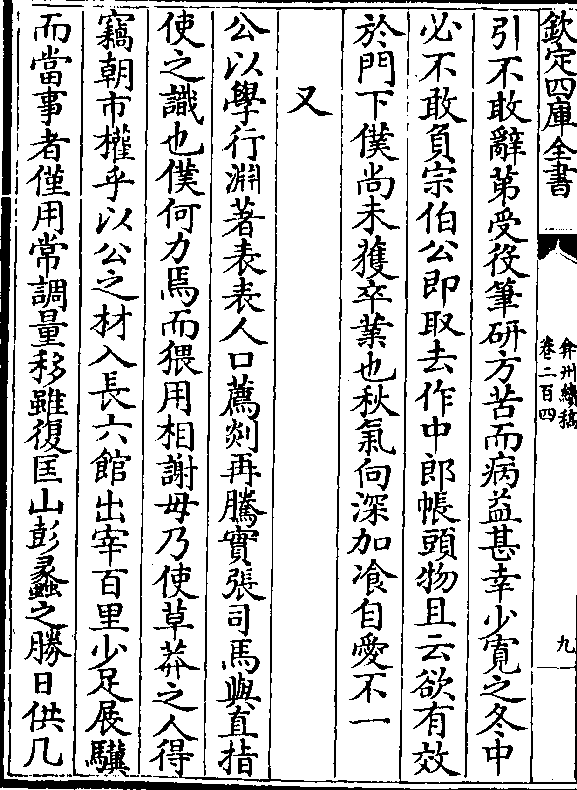 欽定四庫全書
弇州續稿
卷二百四
九
引不敢辭第受役筆研方苦而病益甚幸少寛之冬中
必不敢負宗伯公即取去作中郎帳頭物且云欲有效
於門下僕尚未獲卒業也秋氣向深加飡自愛不一
又
公以學行淵著表表人口薦剡再騰實張司馬與直指
使之識也僕何力焉而猥用相謝毋乃使草莽之人得
竊朝市權乎以公之材入長六館出宰百里少足展驥
而當事者僅用常調量移雖復匡山彭蠡之勝日供几